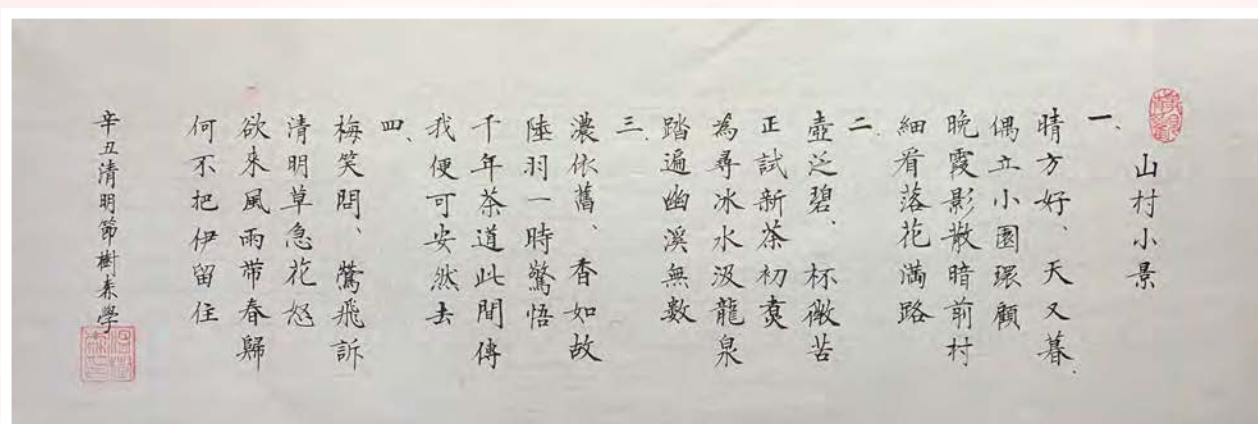 山村小景
一、
晴方好、天又暮.
偶立小園環顧
晚霞影散暗前村
細看落花滿路
二.
壺泛碧.杯微苦
正試新茶初煑
為尋冰水汲龍泉
踏遍幽溪無數
三.
濃依舊、香如故
陸羽一時驚悟
千年茶道此間傳
我便可安然去
四、
梅笑問、鶯飛訴
清明草急花怒
欲來風雨帶春歸
何不把伊留住
辛丑清明節樹森學